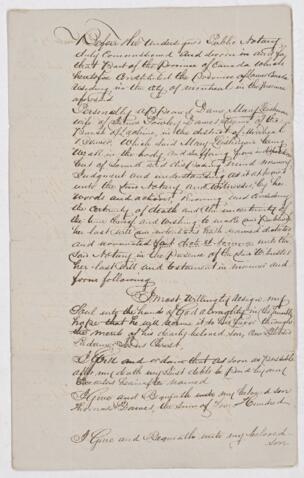 Before the Undersigned Public Notary
duly Commissioned and sworn in and for
that Part of the Province of Canada which
heretofore Constituted the Province of Lower Canada
residing in the City of Montreal in the Province
aforesaid
Personally appeared Dame Mary
wife of James
Parish of Lachine, in the district of Montreal
Farmer, Which said Mary being
weak in the body and suffering
but of Sound mind memory
Judgment and understanding as it appeared
unto the Said Notary and Witnesses by her
words and actions, Knowing and Considering
the certainty of death and the uncertainty of
the time thereof and wishing to make and Publish
her last Will and
and nominated unto the
Said Notary in the presence of the Said Witnesses
her last Will and testament in manner and
form following
I most Willingly resign my
Soul into the hands of God Almighty in the humble
hope that he will receive it through
the merits of his dearly beloved Son, our
Redeemer Jesus Christ.
I Will and ordain that as soon as Possible
after my death my Just debts be paid by my
Executors hereinafter named
I Give and Bequeath unto my beloved Son
Thomas the Sum of Hundred
I Give and Bequeath unto my beloved
Son